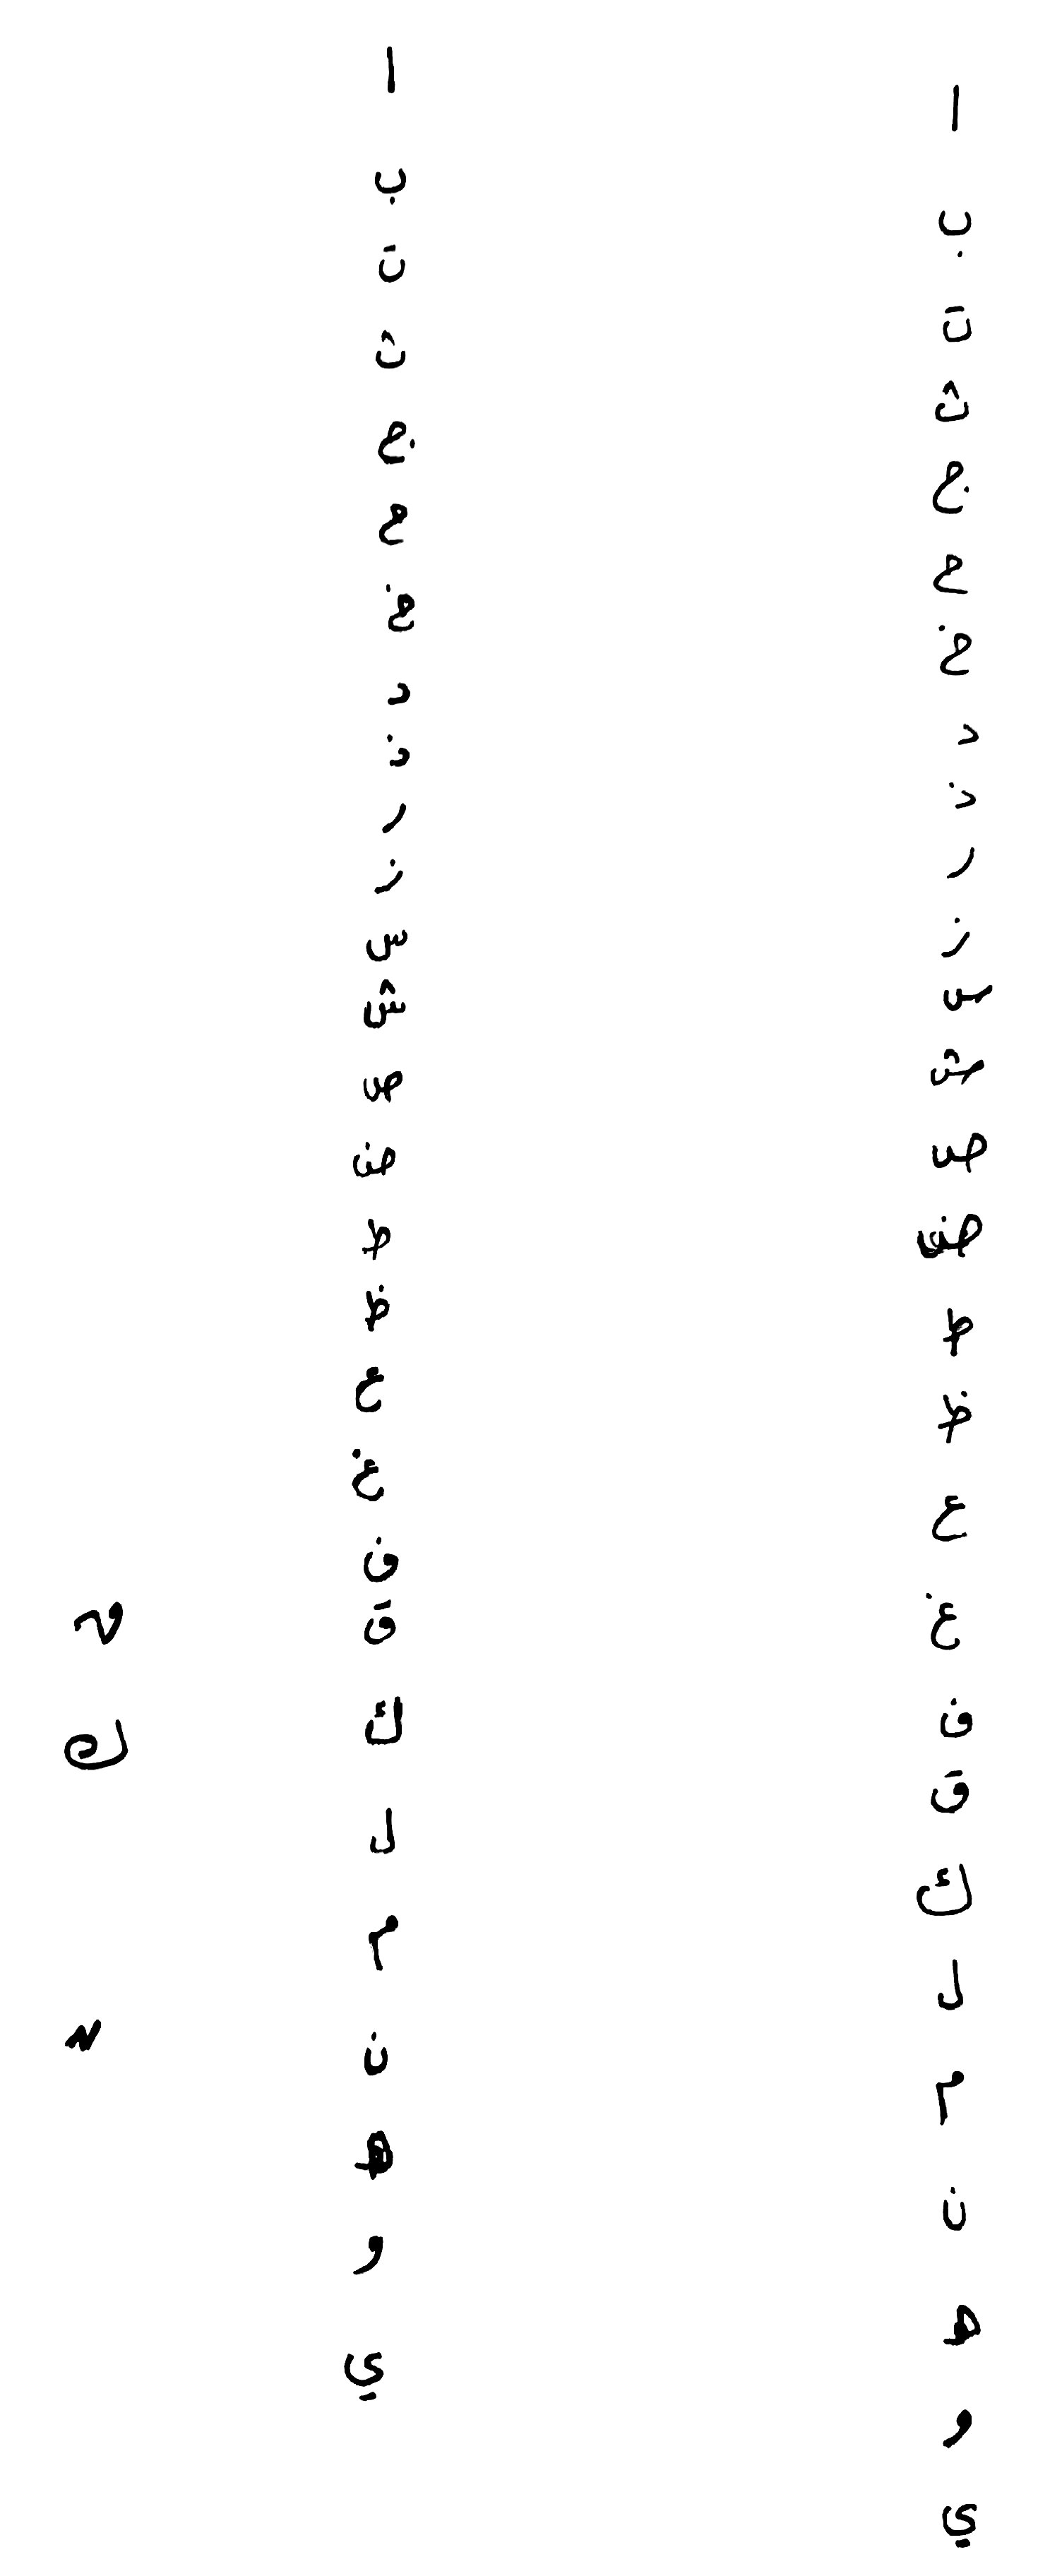 ا
ب
ت
ث
ج
ح
خ
د
ذ
ر
ز
س
ش
ص
ض
ط
ظ
ع
غ
ف
ق
ك
ل
م
ن
ه
و
ي
ا
ب
ت
ث
ج
ح
خ
د
ذ
ر
ز
س
ش
ص
ض
ط
ظ
ع
غ
ف
ق
ك
ل
م
ن
ه
و
ي